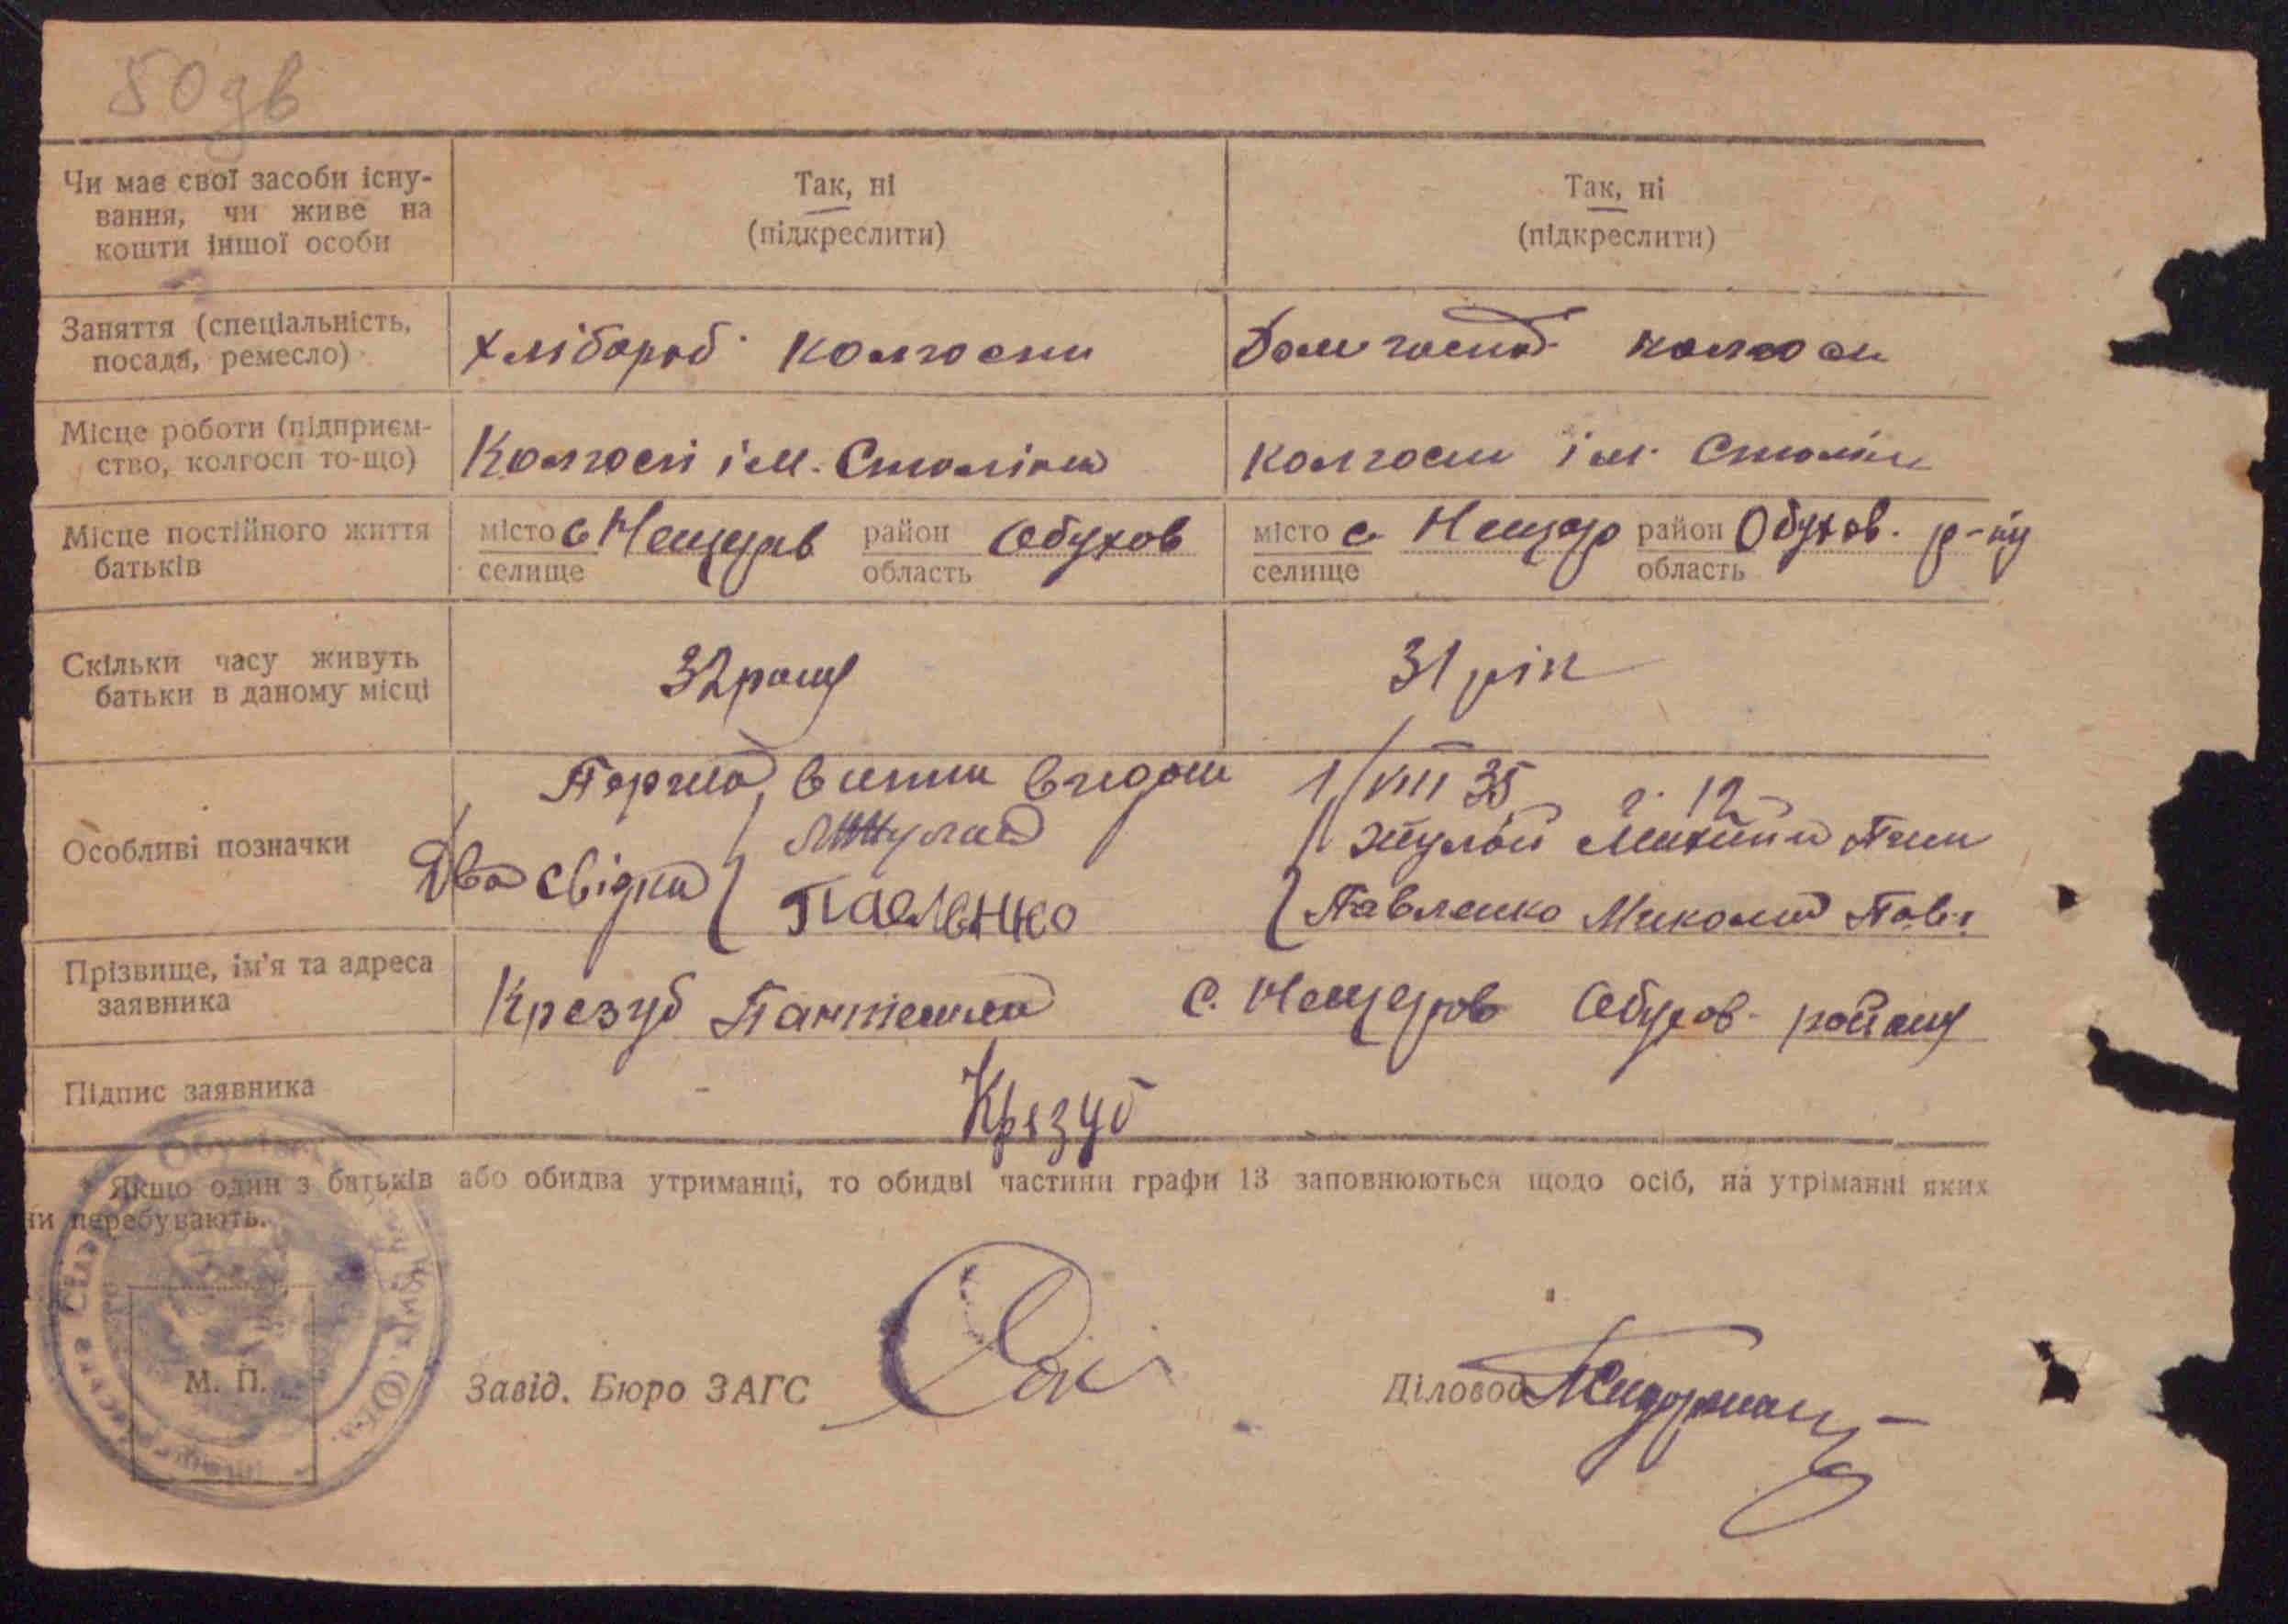 50 дв
Чи має свої засоби існу-
вання, чи живе на
кошти іншої особи
Так, ні
(підкреслити)
Так, ні
(підкреслити)
Заняття (спеціальність,
посада, ремесло)
Хлібороб колгоспн
Дом господ. колгосп
Місце роботи (підприєм-
ство, колгосп то-що)
Колгосп ім. Сталіна
колгосп ім. Сталін
Місце постійного життя
батьків
місто с Нещерів район Обухов
селище область
місто с. Нещер район Обухов. р-ну
селище область
Скільки часу живуть
батьки в даному місці
32 роки
31 рік
Особливі позначки
Перша виписка видана 1/VIII 35 г. 12
Два свідки
Жулай
Павленко Микола Пав.
Павленко
Прізвище, ім'я та адреса
заявника
Крезуб с. Нещеров Обухов. району
Підпис заявника
Крезуб
Якщо один з батьків або обидва утриманці, то обидві частини графи 13 заповнюються щодо осіб, на утріманні яких
ни перебувають.
М. П.
Завід. Бюро ЗАГС
Діловод